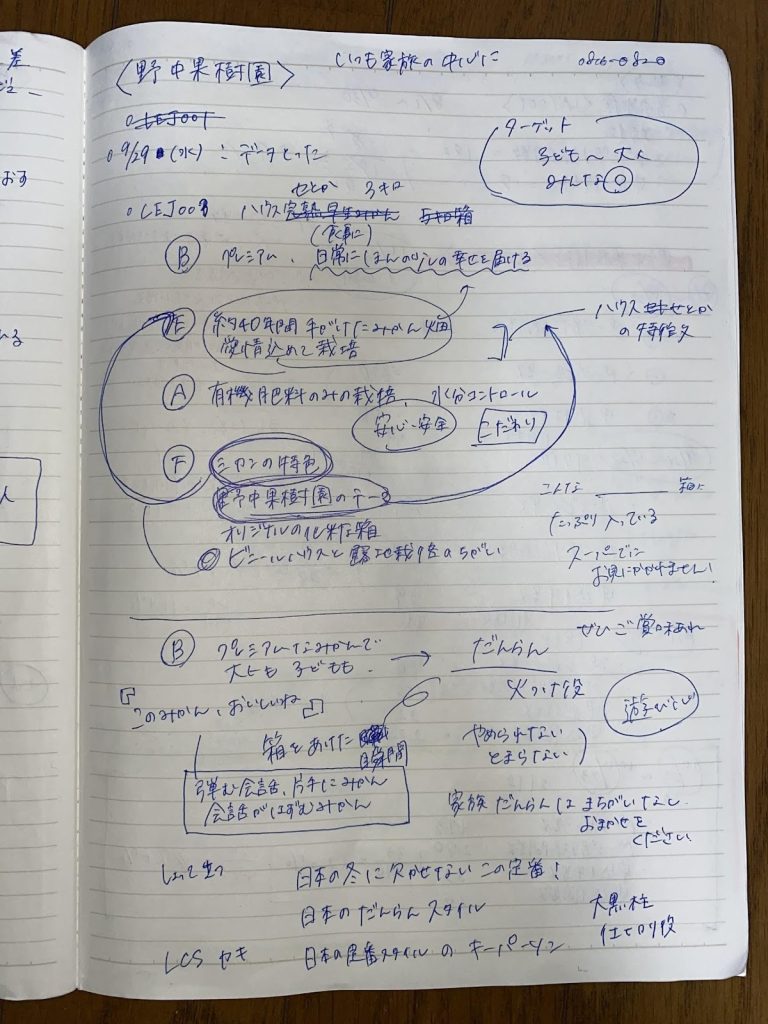 差
おす
いる
人
〈野中果樹園〉
いつも家族の中心に
ターゲット
子ども〜大人
みんな◎
LEJ001
9/29 (水) : データとった
せとか 3キロ
LEJ003 ハウス完熟早生みかん 箱
(食卓に)
Ⓑ プレミアム、日常にほんの少しの幸せを届ける
Ⓔ 約40年間 手がけたみかん畑
愛情込めて栽培
ハウスせとか
の特徴文
Ⓐ 有機肥料のみの栽培、水分コントロール
安心・安全 こだわり
Ⓕ ミカンの特色
野中果樹園のデータ
オリジナルの化粧箱
◎ビニールハウスと露地栽培のちがい
こんな ＿＿＿ 箱に
たっぷり入っている
スーパーでは
お目にかかれません!
ぜひご賞味あれ
Ⓑ プレミアムなみかんで
大人も子どもも。 → だんらん
火つけ役
遊び心
『このみかん、おいしいね』
箱をあけた瞬間
やめられない
とまらない
弾む会話、片手にみかん
会話がはずむみかん
家族だんらんはまちがいなし
おまかせを
ください
日本の冬に欠かせないこの定番!
日本のだんらんスタイル
大黒柱
仕切り役
LCS
日本の定番スタイルのキーパーソン